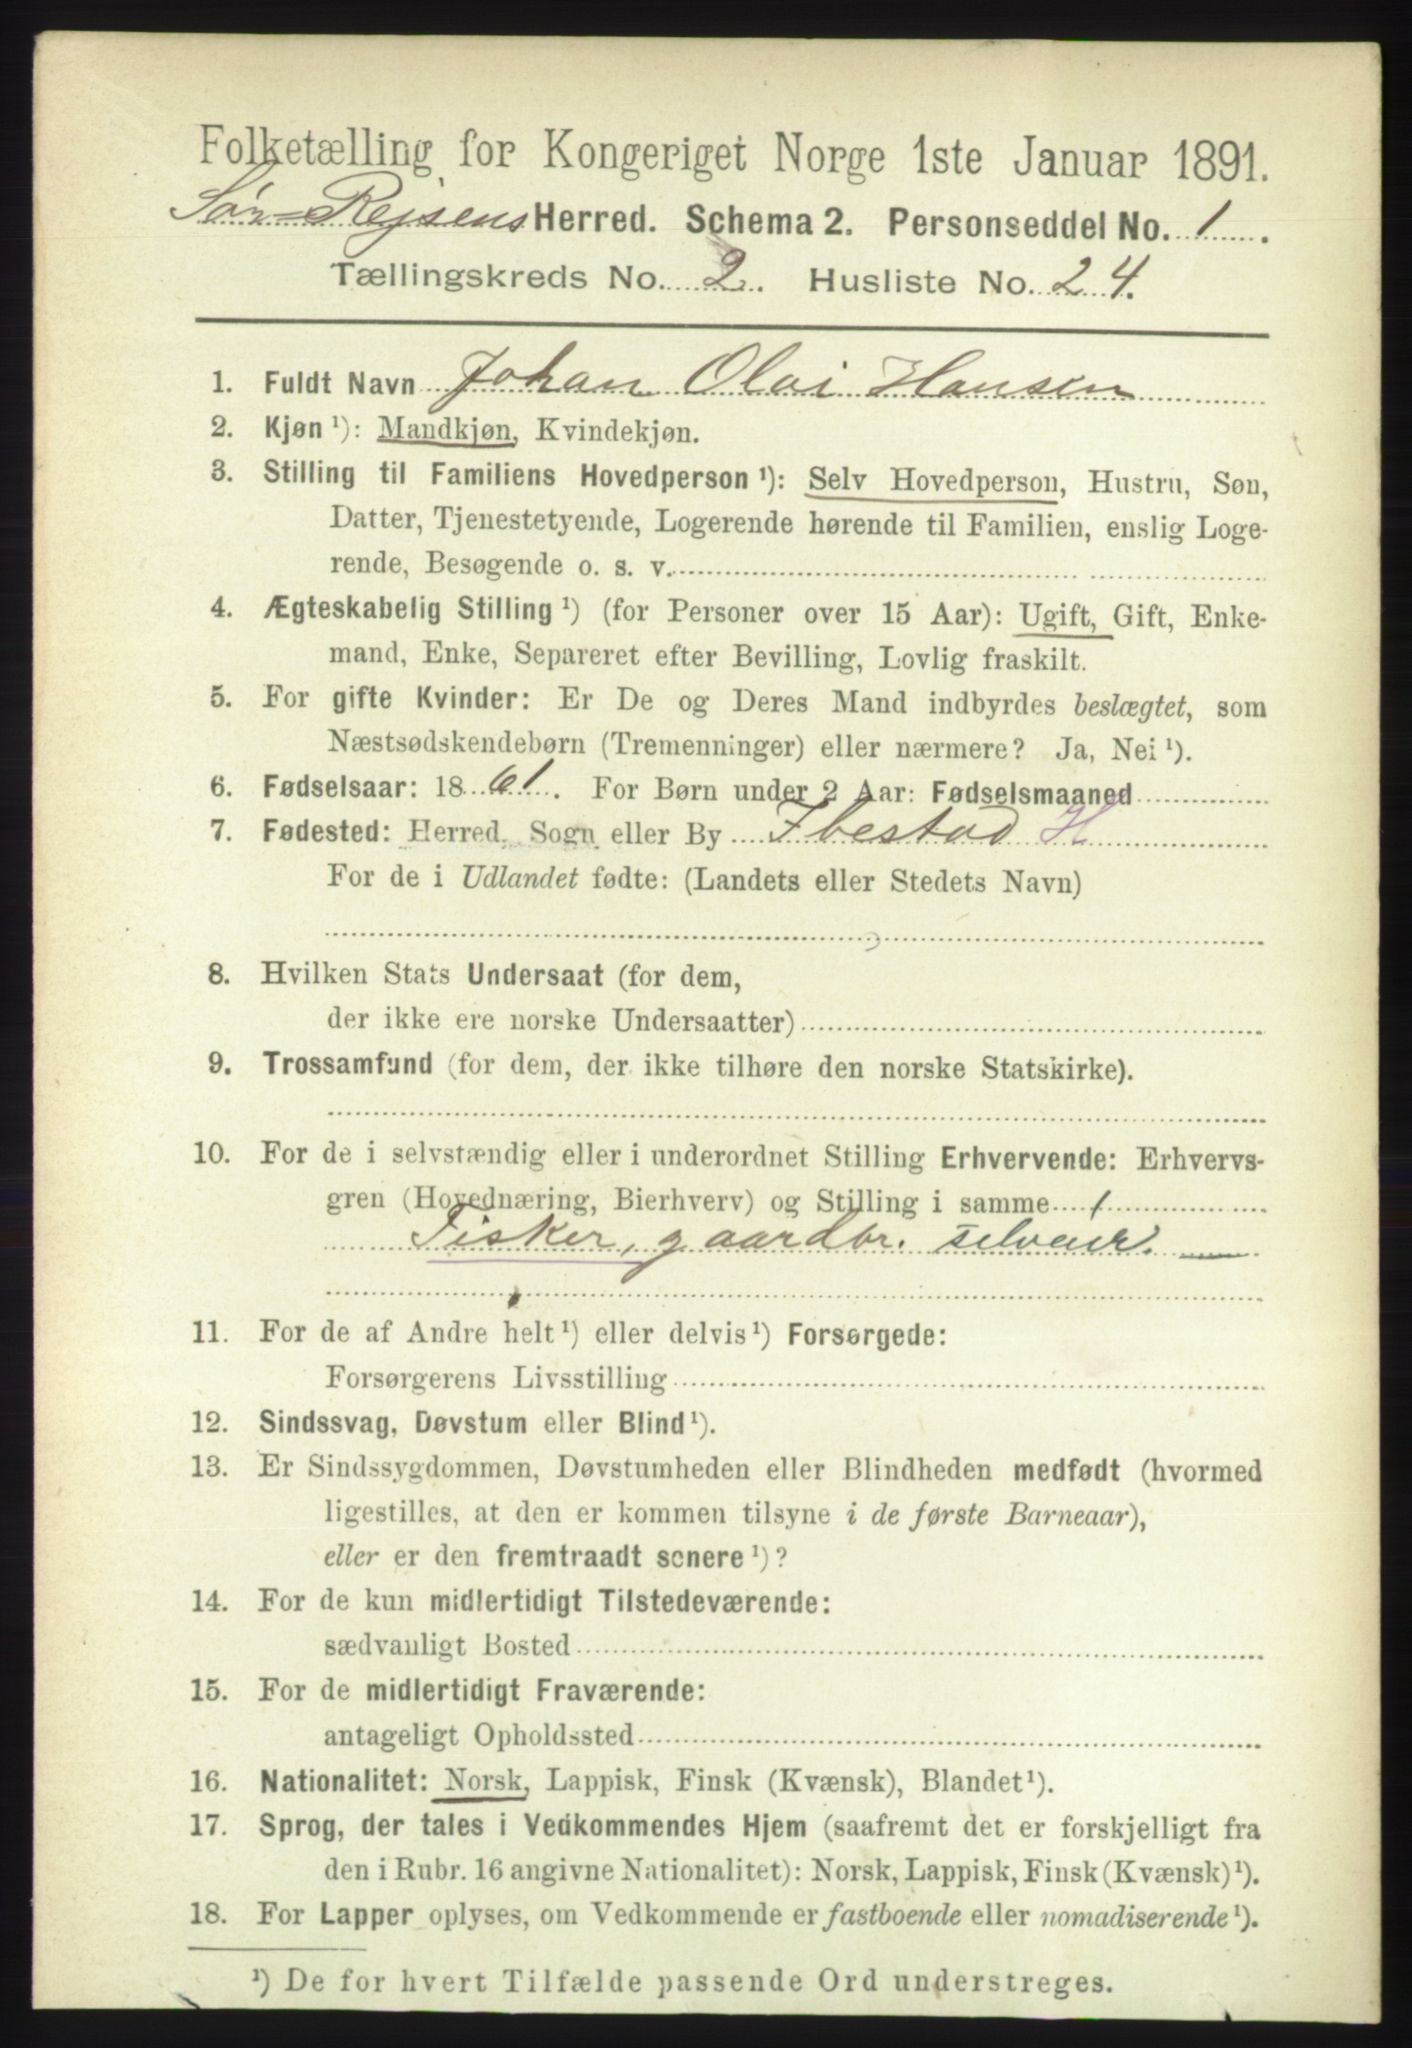 Folketælling for Kongeriget Norge 1ste Januar 1891.
Sør-Rejsens Herred. Schema 2. Personseddel No. 1.
Tællingskreds No. 2. Husliste No. 24.
1. Fuldt Navn Johan Olai Hansen
2. Kjøn ¹): Mandkjøn, Kvindekjøn.
3. Stilling til Familiens Hovedperson ¹): Selv Hovedperson, Hustru, Søn,
Datter, Tjenestetyende, Logerende hørende til Familien, enslig Loge-
rende, Besøgende o. s. v.
4. Ægteskabelig Stilling ¹) (for Personer over 15 Aar): Ugift, Gift, Enke-
mand, Enke, Separeret efter Bevilling, Lovlig fraskilt.
5. For gifte Kvinder: Er De og Deres Mand indbyrdes beslægtet, som
Næstsødskendebørn (Tremenninger) eller nærmere? Ja, Nei ¹).
6. Fødselsaar: 1861. For Børn under 2 Aar: Fødselsmaaned
7. Fødested: Herred, Sogn eller By Ibestad H
For de i Udlandet fødte: (Landets eller Stedets Navn)
8. Hvilken Stats Undersaat (for dem,
der ikke ere norske Undersaatter)
9. Trossamfund (for dem, der ikke tilhøre den norske Statskirke).
10. For de i selvstændig eller i underordnet Stilling Erhvervende: Erhvervs-
gren (Hovednæring, Bierhverv) og Stilling i samme
Fisker, gaardbr. selveier.
11. For de af Andre helt ¹) eller delvis ¹) Forsørgede:
Forsørgerens Livsstilling
12. Sindssvag, Døvstum eller Blind ¹).
13. Er Sindssygdommen, Døvstumheden eller Blindheden medfødt (hvormed
ligestilles, at den er kommen tilsyne i de første Barneaar),
eller er den fremtraadt senere ¹)?
14. For de kun midlertidigt Tilstedeværende:
sædvanligt Bosted
15. For de midlertidigt Fraværende:
antageligt Opholdssted
16. Nationalitet: Norsk, Lappisk, Finsk (Kvænsk), Blandet ¹).
17. Sprog, der tales i Vedkommendes Hjem (saafremt det er forskjelligt fra
den i Rubr. 16 angivne Nationalitet): Norsk, Lappisk, Finsk (Kvænsk) ¹).
18. For Lapper oplyses, om Vedkommende er fastboende eller nomadiserende ¹).
¹) De for hvert Tilfælde passende Ord understreges.